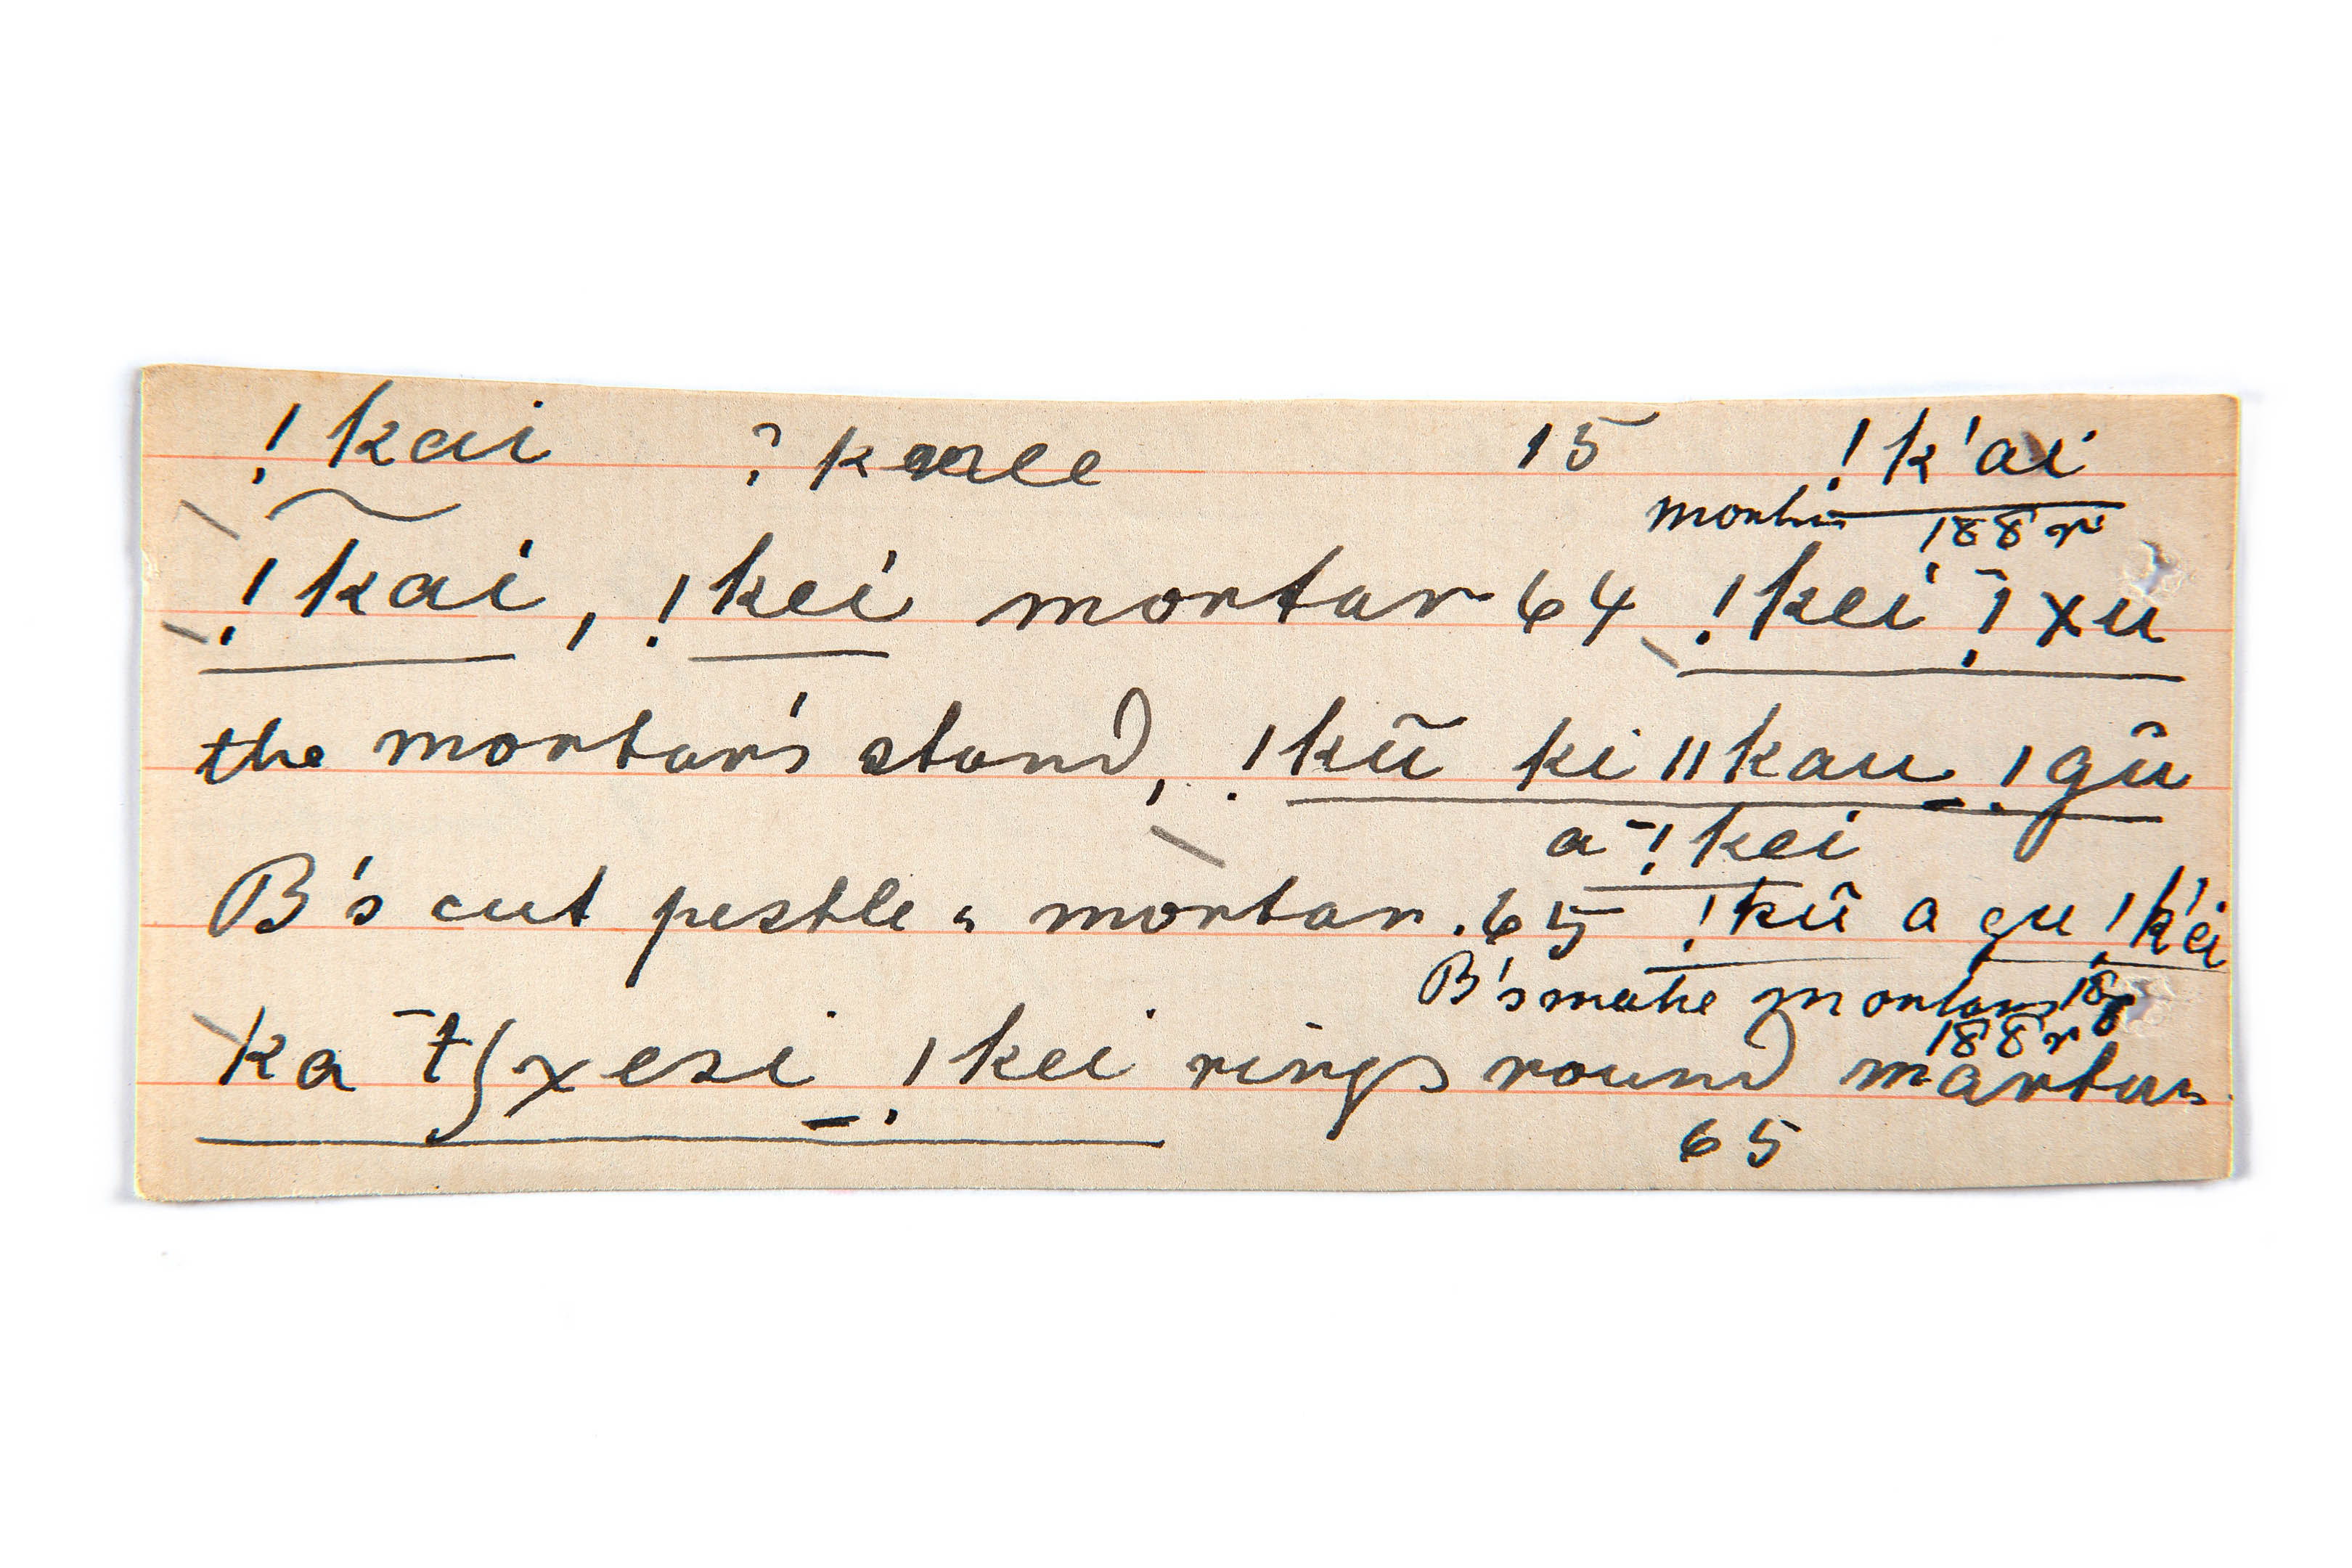 !kai ? 15 !k'ai
188 r
!kai, !kei mortar 64 !kei !xu
the mortar's stand, !kũ ki ||kau !gũ
a !kei
B's cut pestle & mortar. 65 !kũ a gu !k'ei
B's make mortars
188 r
ka xesi !kei rings round mortar
65